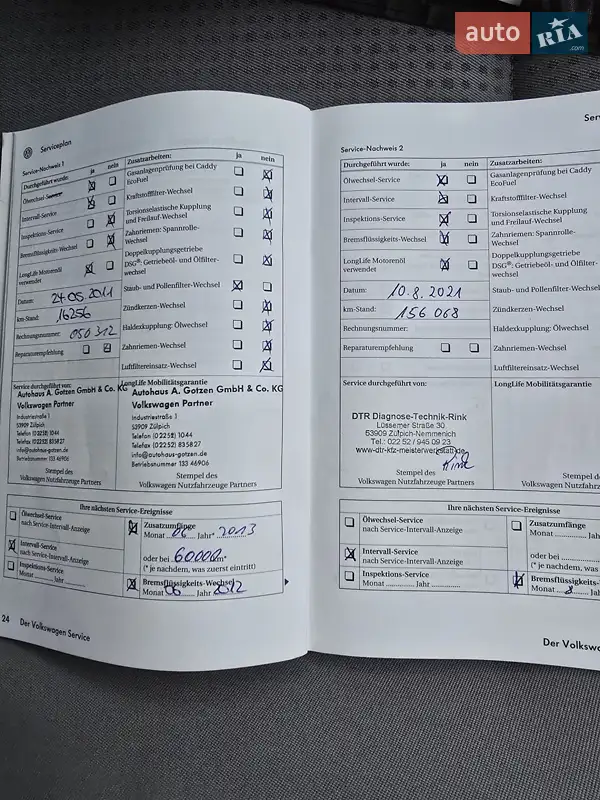 auto RIA .com
Serviceplan
Service-Nachweis 1
Durchgeführt wurde: ja nein
Ölwechsel-Service
Intervall-Service
Inspektions-Service
Bremsflüssigkeits-Wechsel
LongLife Motorenöl
verwendet
Datum: 24.05.2011
km-Stand: 16256
Rechnungsnummer: 050312
Reparaturempfehlung
Zusatzarbeiten: ja nein
Gasanlagenprüfung bei Caddy
EcoFuel
Kraftstofffilter-Wechsel
Torsionselastische Kupplung
und Freilauf-Wechsel
Zahnriemen: Spannrolle-
Wechsel
Doppelkupplungsgetriebe
DSG®: Getriebeöl- und Ölfilter-
wechsel
Staub- und Pollenfilter-Wechsel
Zündkerzen-Wechsel
Haldexkupplung: Ölwechsel
Zahnriemen-Wechsel
Luftfiltereinsatz-Wechsel
Service durchgeführt von:
Autohaus A. Gotzen GmbH & Co. KG
Volkswagen Partner
Industriestraße 1
53909 Zülpich
Telefon (0 22 52) 10 44
Telefax (0 22 52) 83 58 27
info@autohaus-gotzen.de
Betriebsnummer 133 46906
Stempel des
Volkswagen Nutzfahrzeuge Partners
LongLife Mobilitätsgarantie
Autohaus A. Gotzen GmbH & Co. KG
Volkswagen Partner
Industriestraße 1
53909 Zülpich
Telefon (0 22 52) 10 44
Telefax (0 22 52) 83 58 27
info@autohaus-gotzen.de
Betriebsnummer 133 46906
Stempel des
Volkswagen Nutzfahrzeuge Partners
Ihre nächsten Service-Ereignisse
Ölwechsel-Service
nach Service-Intervall-Anzeige
Intervall-Service
nach Service-Intervall-Anzeige
Inspektions-Service
Monat Jahr
Zusatzumfänge
Monat 06 Jahr* 2013
oder bei 60000 km*
(* je nachdem, was zuerst eintritt)
Bremsflüssigkeits-Wechsel
Monat 06 Jahr 2012
24 Der Volkswagen Service
Service-Nachweis 2
Durchgeführt wurde: ja nein
Ölwechsel-Service
Intervall-Service
Inspektions-Service
Bremsflüssigkeits-Wechsel
LongLife Motorenöl
verwendet
Datum: 10.8.2021
km-Stand: 156 068
Rechnungsnummer:
Reparaturempfehlung
Zusatzarbeiten:
Gasanlagenprüfung bei Caddy
EcoFuel
Kraftstofffilter-Wechsel
Torsionselastische Kupplung
und Freilauf-Wechsel
Zahnriemen: Spannrolle-
Wechsel
Doppelkupplungsgetriebe
DSG®: Getriebeöl- und Ölfilter-
wechsel
Staub- und Pollenfilter-Wechsel
Zündkerzen-Wechsel
Haldexkupplung: Ölwechsel
Zahnriemen-Wechsel
Luftfiltereinsatz-Wechsel
Service durchgeführt von:
DTR Diagnose-Technik-Rink
Lüssemer Straße 30
53909 Zülpich-Nemmenich
Tel.: 022 52 / 945 09 23
www-dtr-kfz-meisterwerkstatt-de
Rink
Stempel des
Volkswagen Nutzfahrzeuge Partners
LongLife Mobilitätsgarantie
Volkswagen Nutzfahrz
Ihre nächsten Service-Ereignisse
Ölwechsel-Service
nach Service-Intervall-Anzeige
Intervall-Service
nach Service-Intervall-Anzeige
Inspektions-Service
Monat Jahr
Zusatzumfänge
Monat Jahr
oder bei
(* je nachdem, was
Bremsflüssigkeits-
Monat 8 Jahr
Der Volkswa